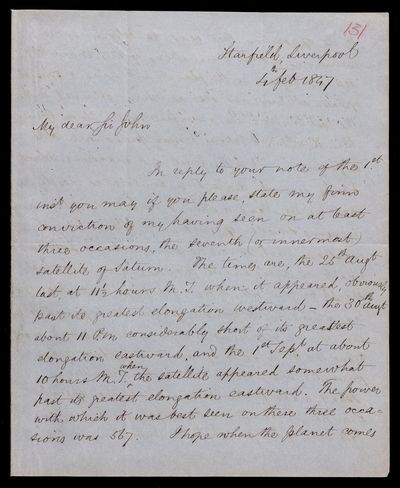 131
Starfield, Liverpool
4th feb 1847
My dear Sir John
In reply to your note of the 1st
inst you may if you please, state my firm
conviction of my having seen on at least
three occasions, the seventh (or innermost)
satellite of Saturn. The times are, the 25th Augt
last, at 11½ hours M.T. when it appeared, obviously
past its greatest elongation westward – the 30th Augt
about 11 P.m considerably short of its greatest
elongation eastward, and the 1st Sept at about
10 hours M.T. when the satellite appeared somewhat
past its greatest elongation eastward. The power
with which it was best seen on these three occa-
sions was 567. I hope when the planet comes